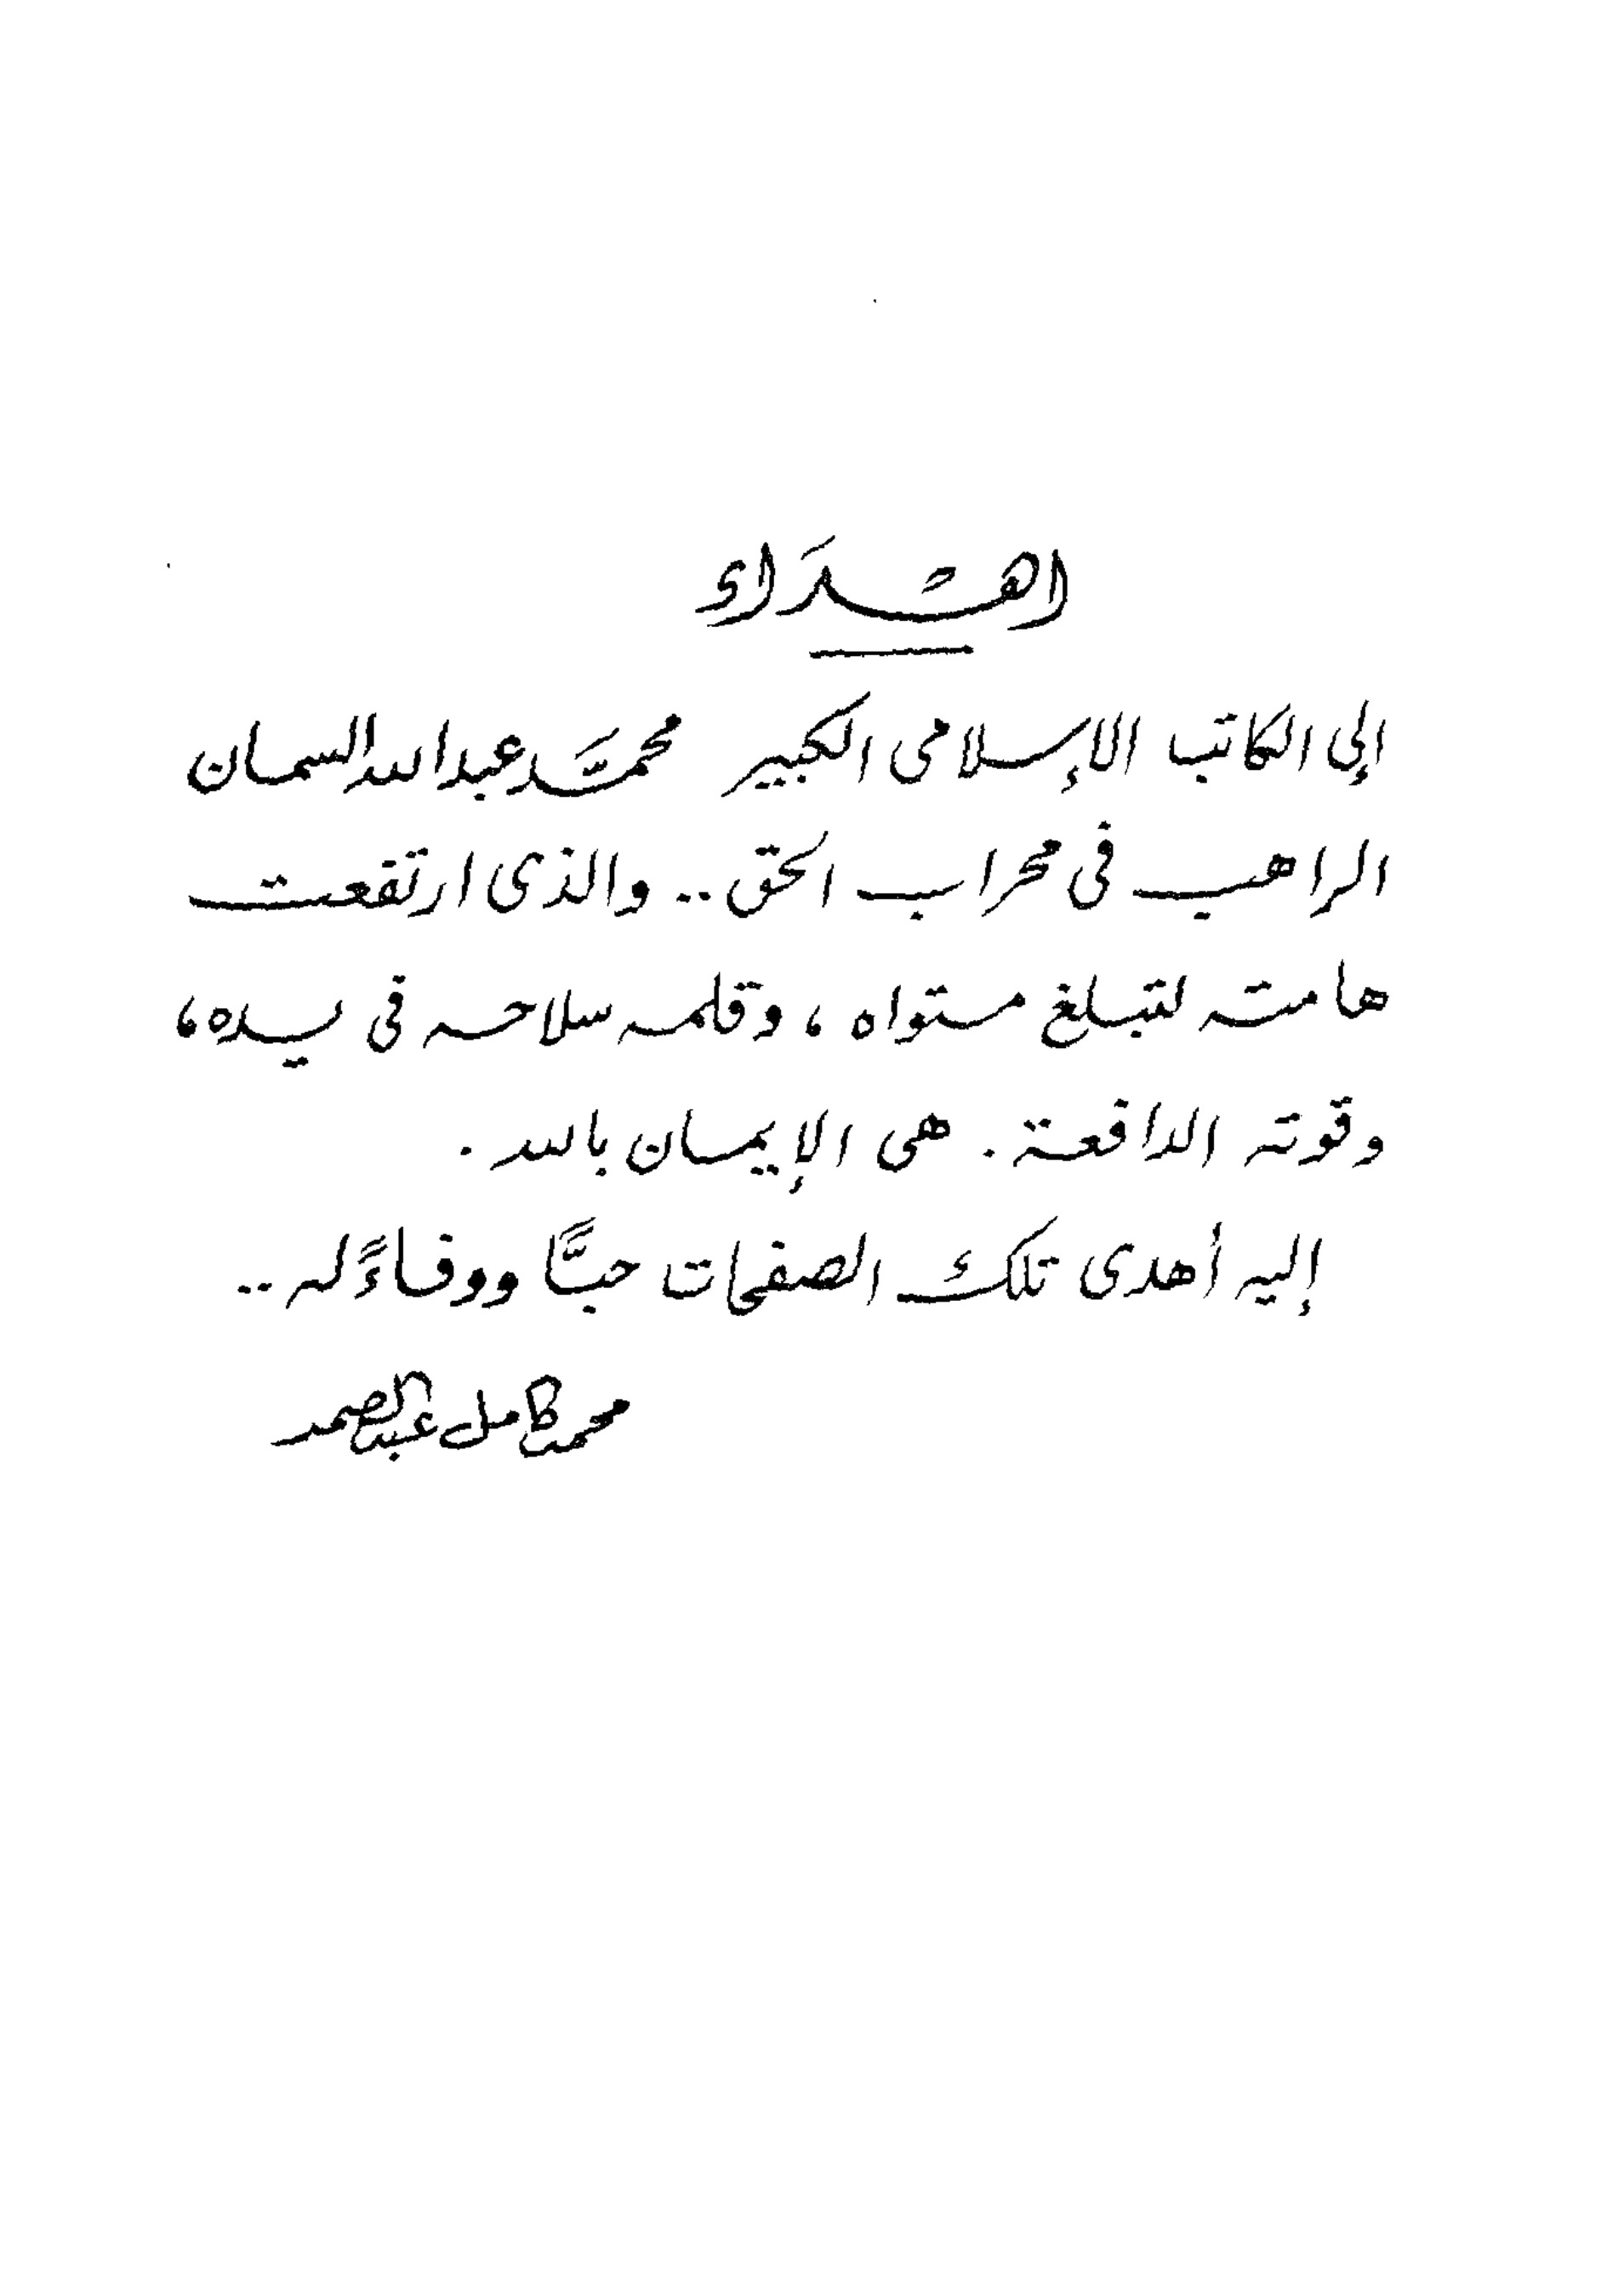 اهـداء
إلى الكاتب الإسلامى الكبير محمد عبد الله السمان
الراهب فى محراب الحق .. والذى ارتفعت
هامته لتبلغ مستواه ، وقلمه سلاحه فى يده ،
وقوته الدافعة . هى الإيمان بالله .
إليه أهدى تلك الصفحات حبًّا ووفاءً له ..
محمد كامل عبد الصمد